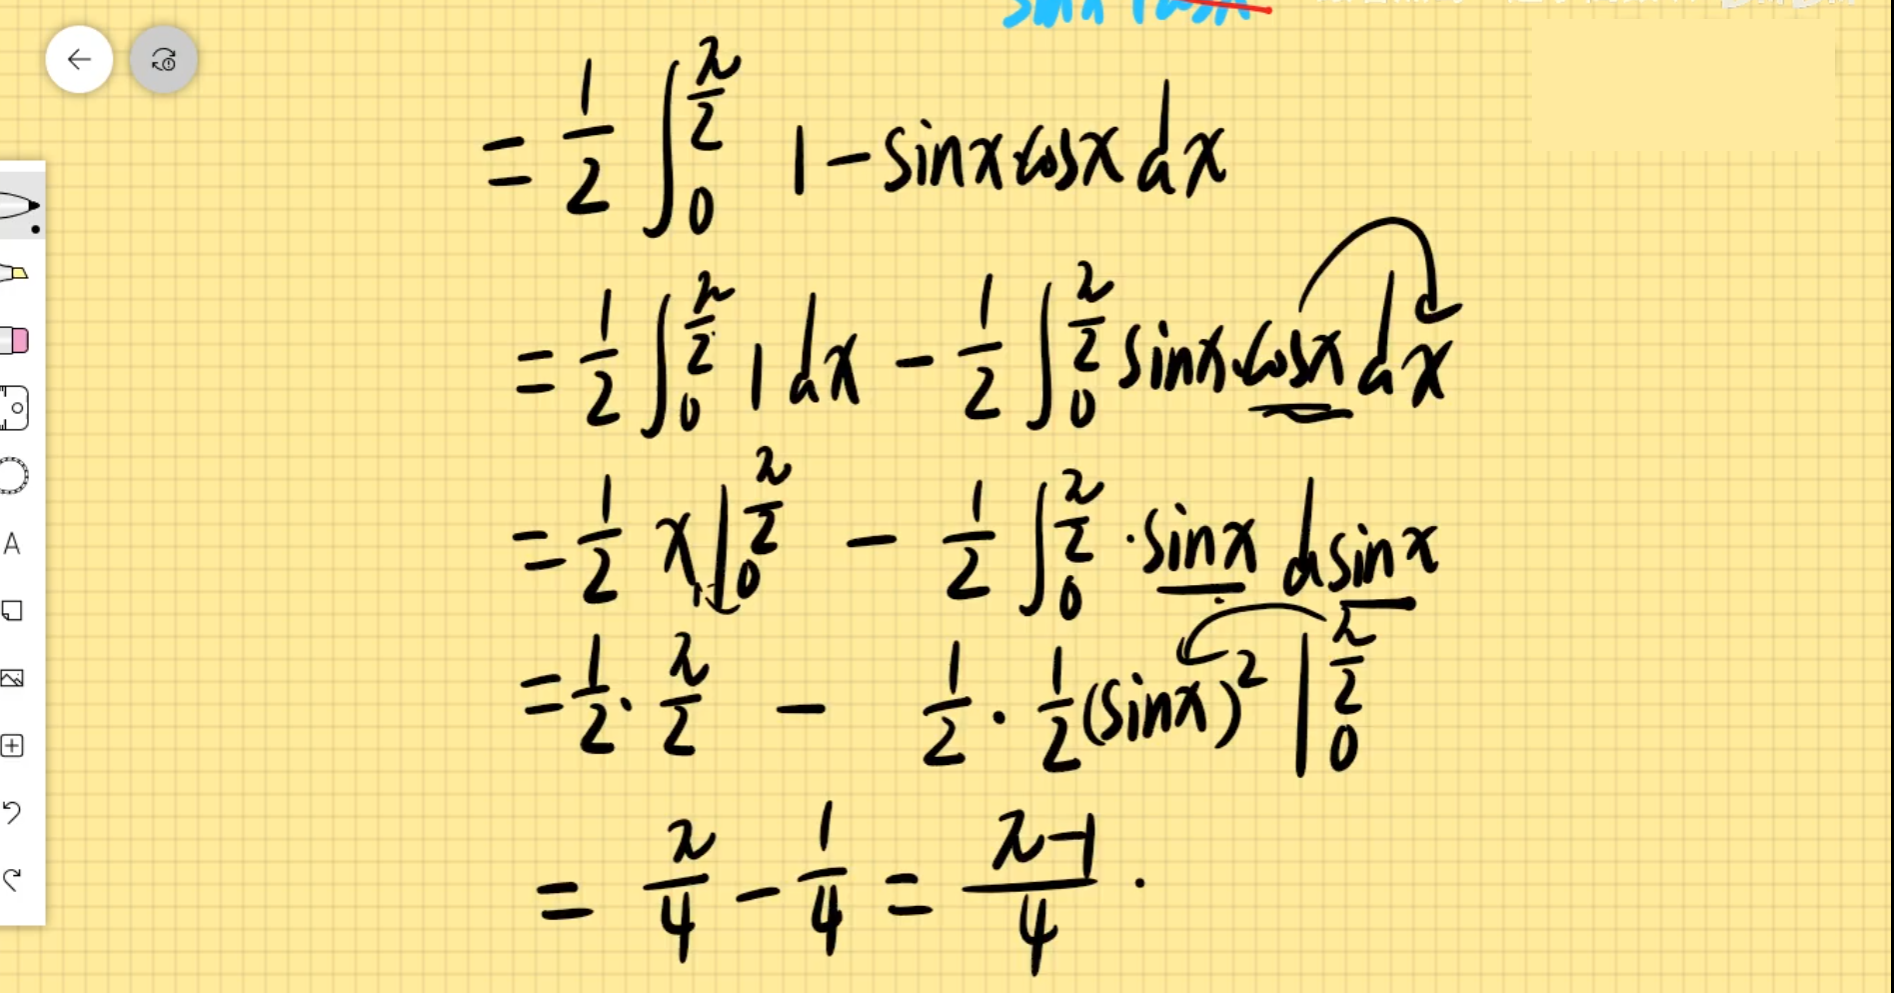 sinx+cosx
= 1/2 ∫_0^{π/2} 1 - sinx·cosx dx
= 1/2 ∫_0^{π/2} 1 dx - 1/2 ∫_0^{π/2} sinx·cosx dx
= 1/2 x |_0^{π/2} - 1/2 ∫_0^{π/2} · sinx dsinx
= 1/2 · π/2 - 1/2 · 1/2 (sinx)^2 |_0^{π/2}
= π/4 - 1/4 = π-1/4 .
A